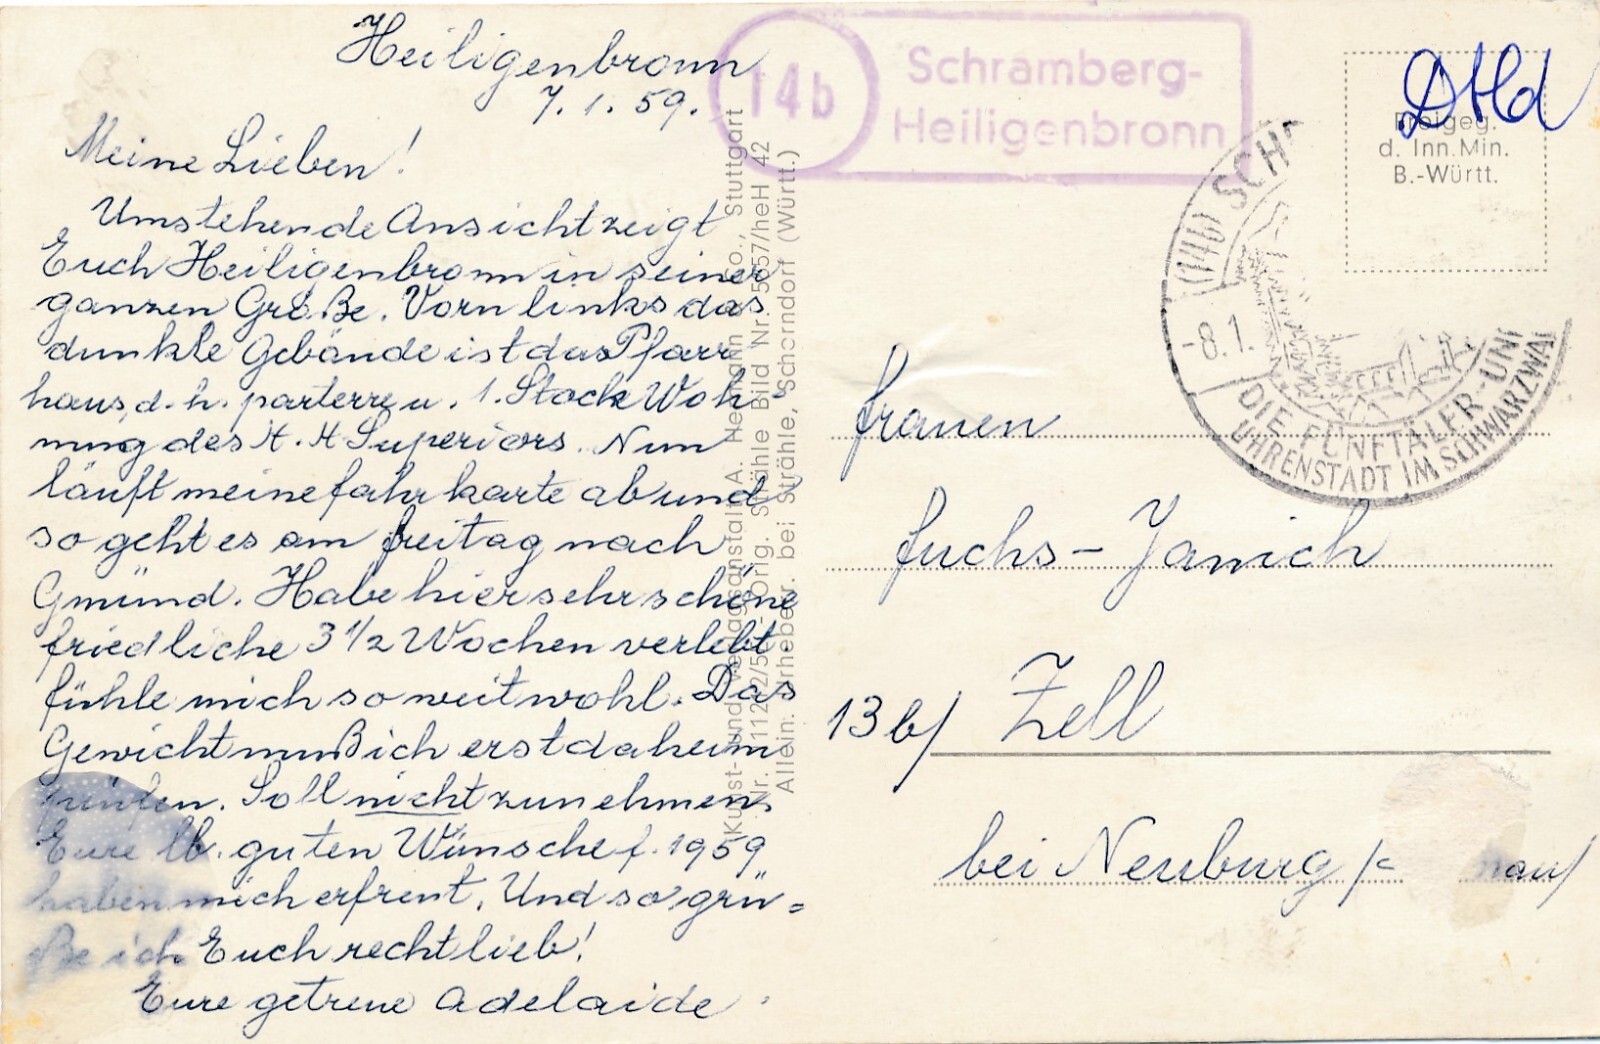 Heiligenbronn
7. 1. 59.
Meine Lieben!
Umstehende Ansicht zeigt
Euch Heiligenbronn in seiner
ganzen Größe. Vorn links das
dunkle Gebände ist das Pfarr
haus, d. h. parterre u. 1. Stock Woh-
nung des H. H Superiors. Nun
läuft meine fahrkarte ab und
so geht es am freitag nach
Gmünd. Habe hier sehr schöne
friedliche 3 1/2 Wochen verlebt.
fühle mich soweit wohl. Das
Gewicht muß ich erst daheim
prüfen. Soll nicht zunehmen.
Eure lb. guten Wünsche f. 1959
haben mich erfreut. Und so grü=
ße ich Euch recht lieb!
Eure getreue Adelaide.
Kunst- und Verlagsanstalt A. Stuttgart
Orig. Strähle Bild Nr. 5557/heH 42
Allein. Urheber. bei Strähle, Schorndorf (Württ.)
14b
Schramberg-
Heiligenbronn
DHd
Freigeg.
d. Inn. Min.
B.-Württ.
(14b) SCH
-8.1.
DIE FÜNFTÄLER-UN
UHRENSTADT IM SCHWARZWA
frauen
fuchs - Janich
13b/ Zell
bei Neuburg/